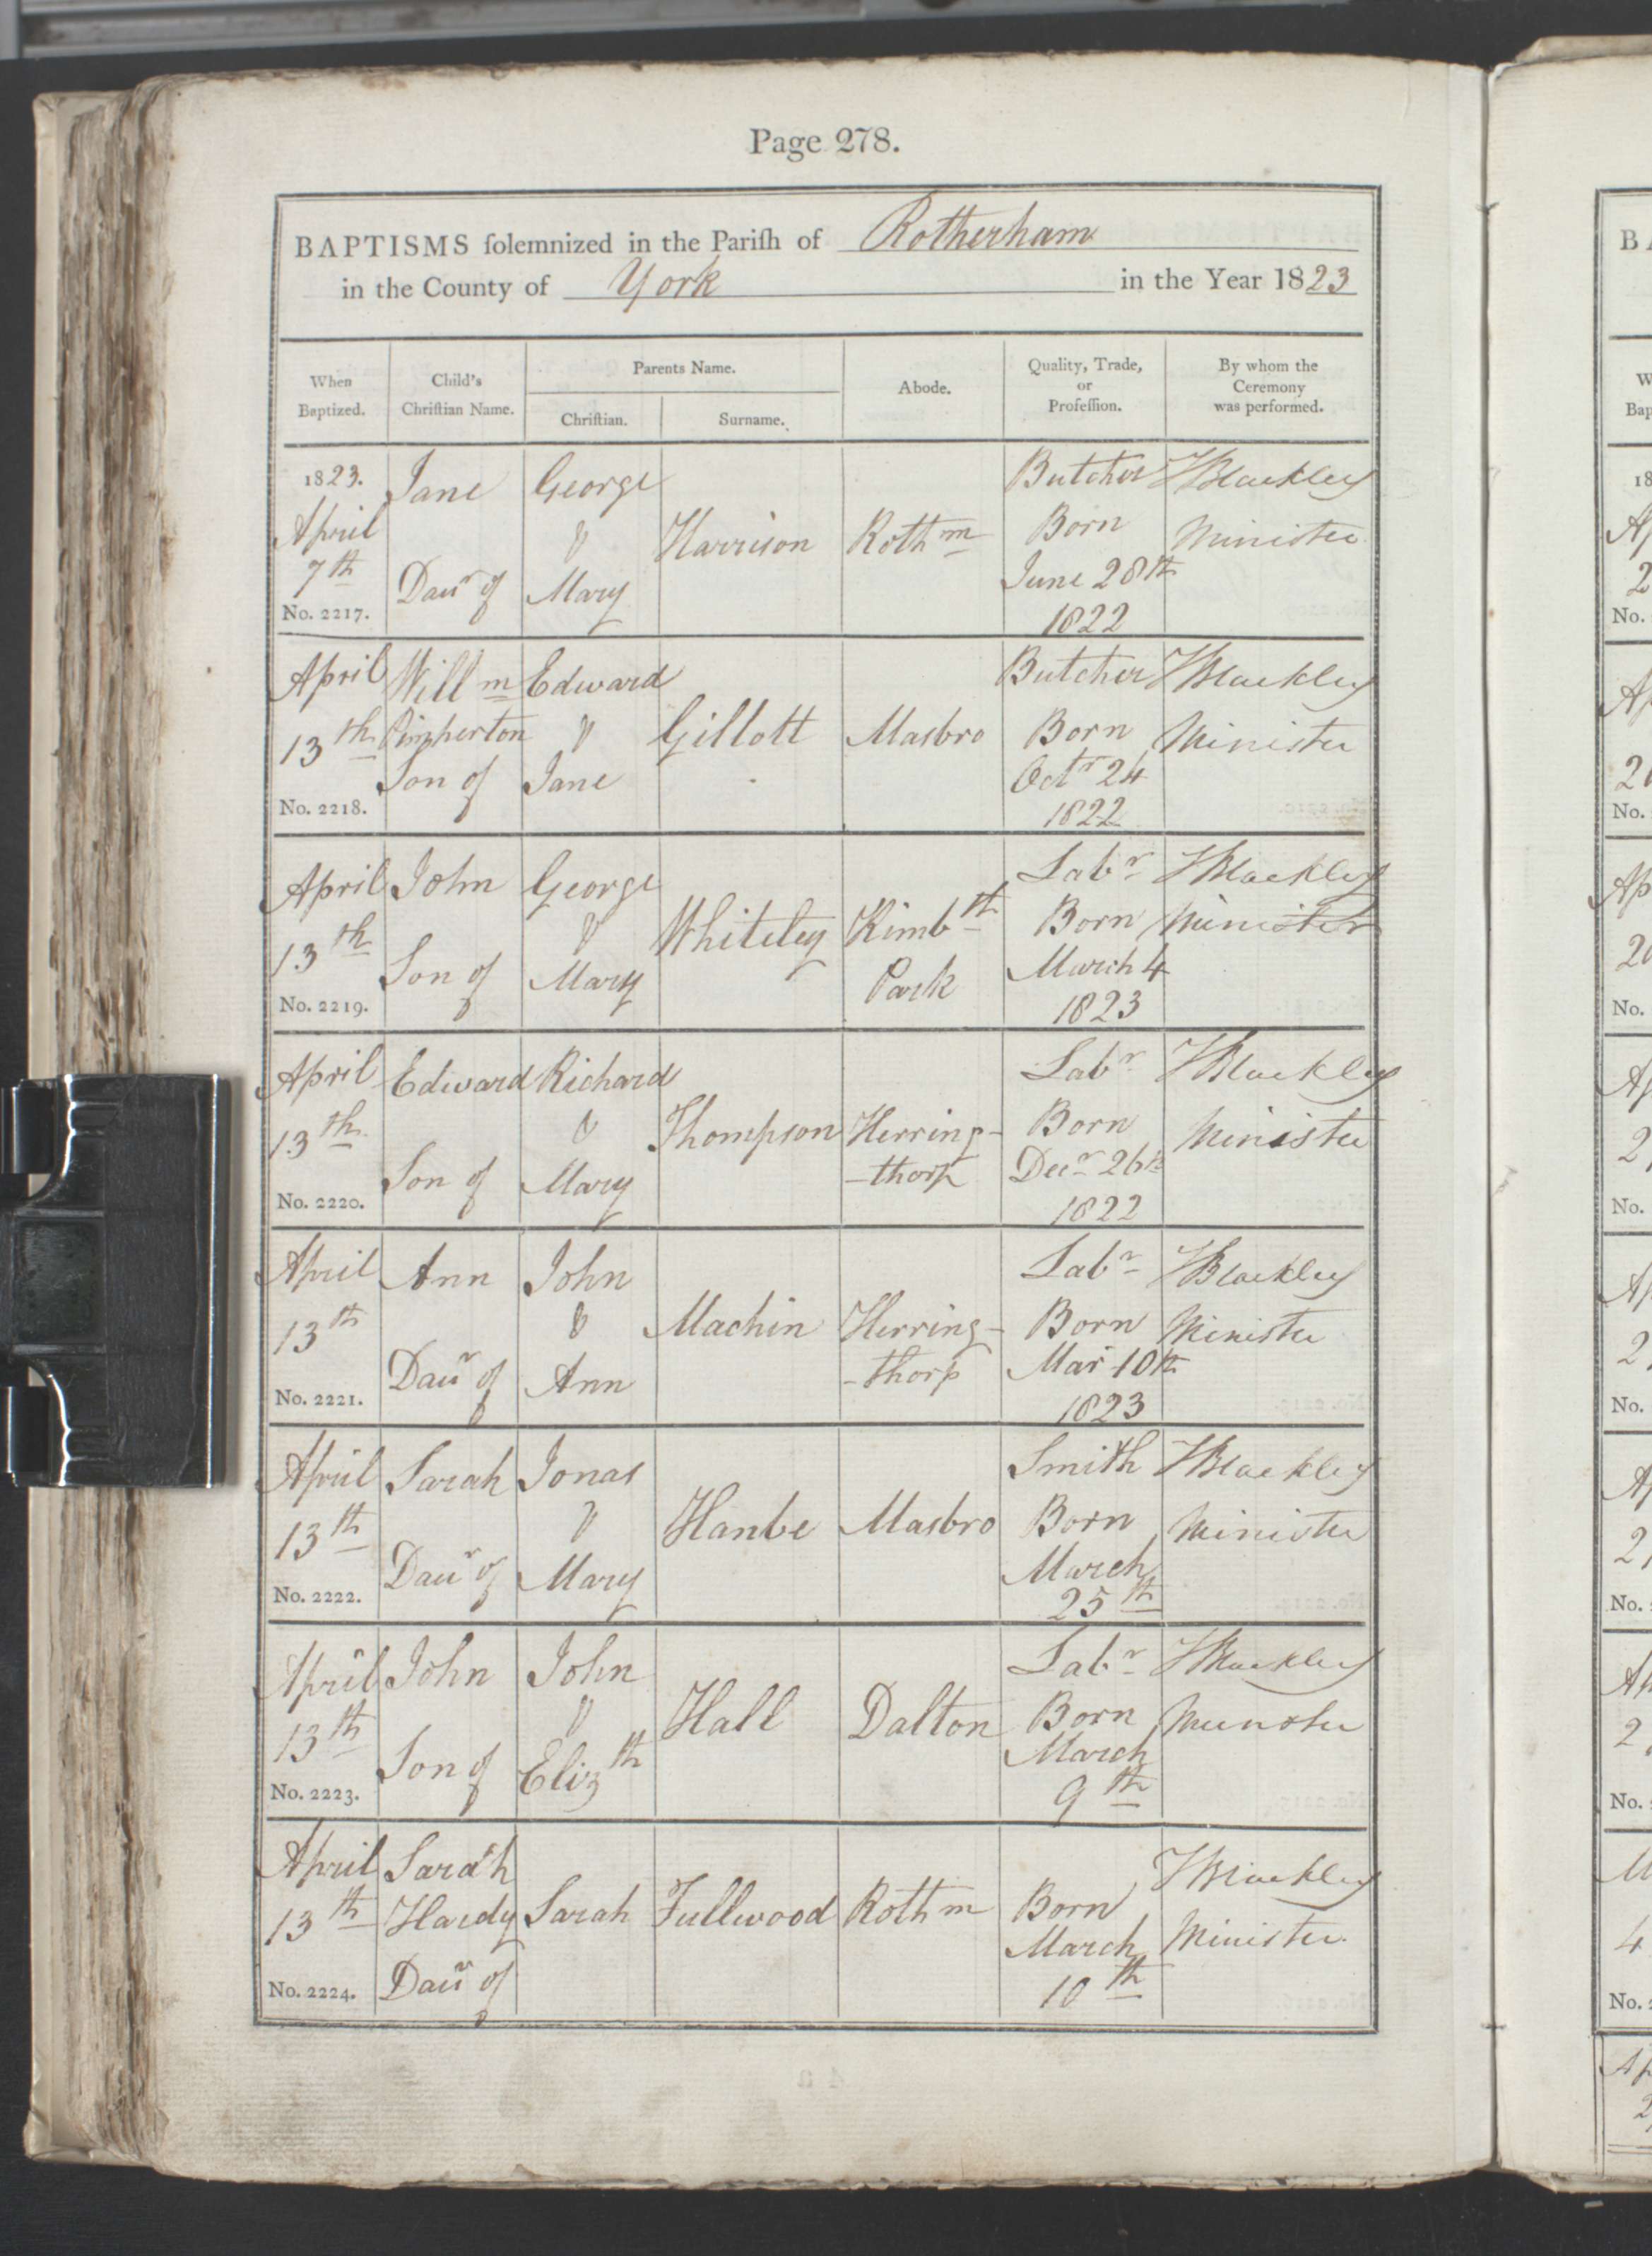 Page 278.
BAPTISMS ſolemnized in the Pariſh of Rotherham
in the County of York in the Year 1823
When Baptized. Child's Chriſtian Name. Parents Name. Chriſtian. Surname. Abode. Quality, Trade, or Profeſſion. By whom the Ceremony was performed.
1823. Jane George Butcher Blackley
April & Harrison Rothm Born Minister
7th Daur of Mary June 28th
No. 2217. 1822
April Willm Edward Butcher Blackley
13th Pimperton & Gillott Masbro Born Minister
Son of Jane Octr 24
No. 2218. 1822
April John George Labr Blackley
13th & Whiteley Kimbth Born Minister
Son of Mary Park March 4
No. 2219. 1823
April Edward Richard Labr Blackley
13th & Thompson Herring- Born Minister
Son of Mary -thorp Decr 26th
No. 2220. 1822
April Ann John Labr Blackley
13th & Machin Herring- Born Minister
Daur of Ann -thorp Mar 10th
No. 2221. 1823
April Sarah Jonas Smith Blackley
13th & Hanbe Masbro Born Minister
Daur of Mary March
No. 2222. 25th
April John John Labr Blackley
13th & Hall Dalton Born Minister
Son of Elizth March
No. 2223. 9th
April Sarah Blackley
13th Hardy Sarah Fullwood Rothm Born Minister
Daur of March
No. 2224. 10th